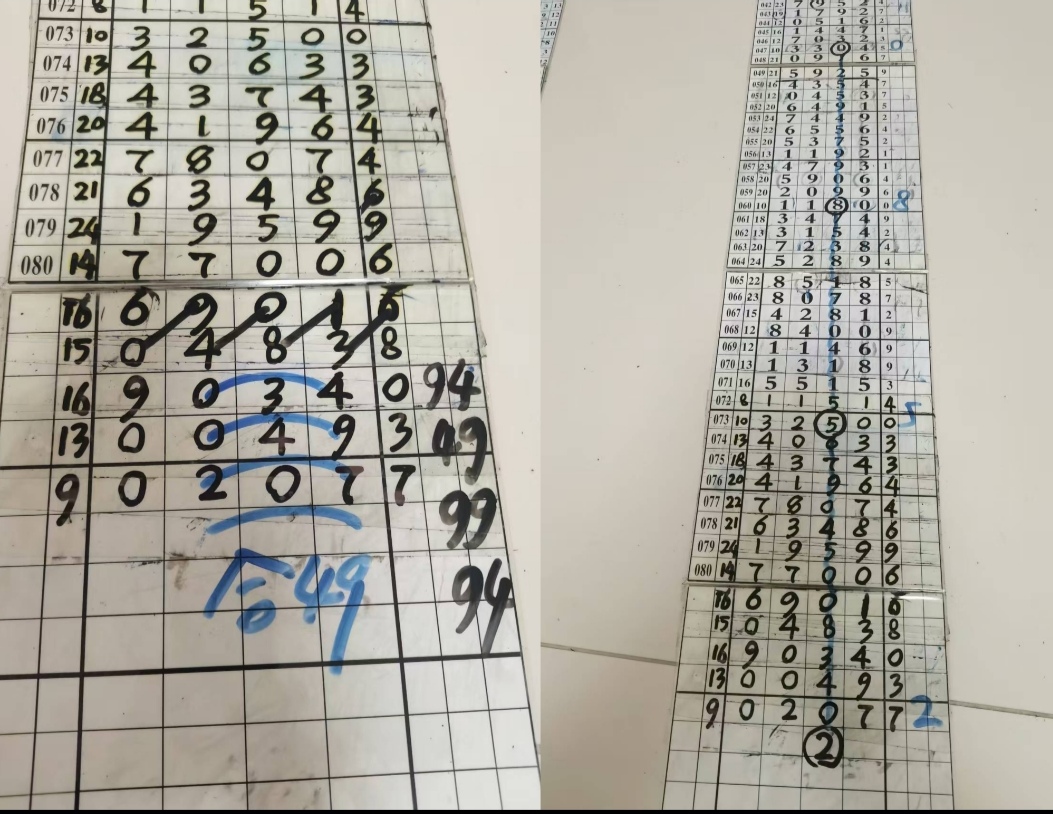 072 8 1 1 5 1 4
073 10 3 2 5 0 0
074 13 4 0 6 3 3
075 18 4 3 7 4 3
076 20 4 1 9 6 4
077 22 7 8 0 7 4
078 21 6 3 4 8 6
079 24 1 9 5 9 9
080 14 7 7 0 0 6
16 6 9 0 1 6
15 0 4 8 3 8
16 9 0 3 4 0 94
13 0 0 4 9 3 49
9 0 2 0 7 7
99
49
94
047 10 3 3 0 4 5 0
048 21 0 9 6 7
049 21 5 9 2 5 9
050 16 4 3 5 4 7
051 12 0 4 5 3 7
052 20 6 4 9 1 5
053 24 7 4 4 9 2
054 22 6 5 5 6 4
055 20 5 3 7 5 2
056 13 1 1 9 2 1
057 23 4 7 9 3 1
058 20 5 9 0 6 4
059 20 2 0 9 9 6
060 10 1 1 8 0 0 8
061 18 3 4 7 4 9
062 13 3 1 5 4 2
063 20 7 2 3 8 4
064 24 5 2 8 9 4
065 22 8 5 1 8 5
066 23 8 0 7 8 7
067 15 4 2 8 1 2
068 12 8 4 0 0 9
069 12 1 1 4 6 9
070 13 1 3 1 8 9
071 16 5 5 1 5 3
072 8 1 1 5 1 4 5
073 10 3 2 5 0 0
074 13 4 0 6 3 3
075 18 4 3 7 4 3
076 20 4 1 9 6 4
077 22 7 8 0 7 4
078 21 6 3 4 8 6
079 24 1 9 5 9 9
080 14 7 7 0 0 6
16 6 9 0 1 6
15 0 4 8 3 8
16 9 0 3 4 0
13 0 0 4 9 3
9 0 2 0 7 7 2
2